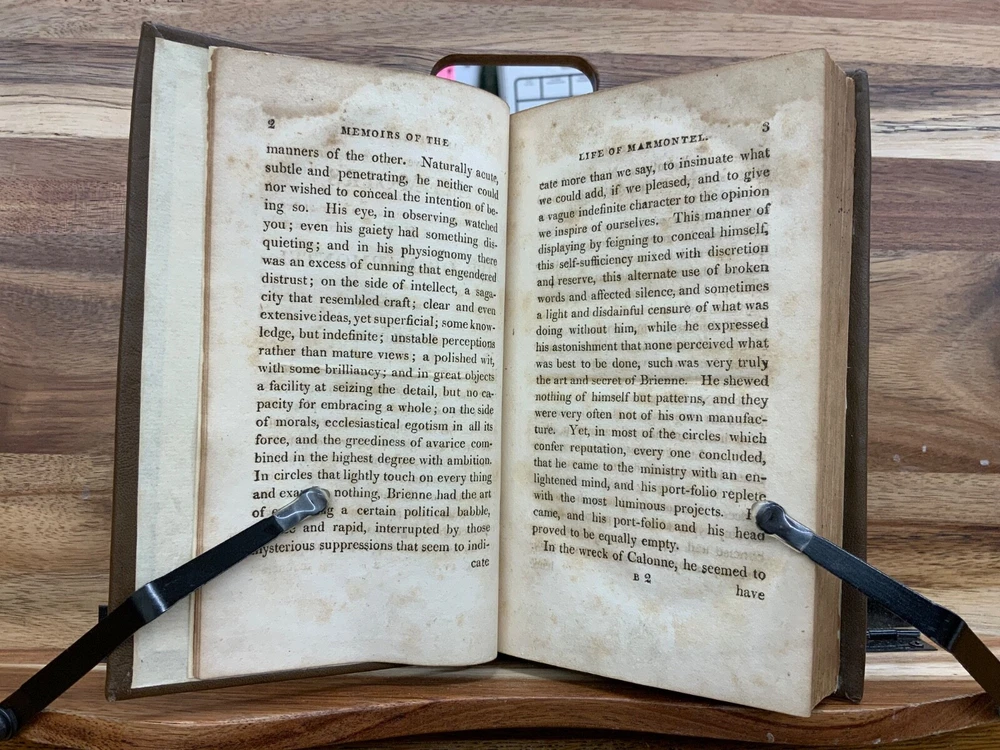 2
MEMOIRS OF THE
manners of the other. Naturally acute,
subtle and penetrating, he neither could
nor wished to conceal the intention of be-
ing so. His eye, in observing, watched
you; even his gaiety had something dis-
quieting; and in his physiognomy there
was an excess of cunning that engendered
distrust; on the side of intellect, a saga-
city that resembled craft; clear and even
extensive ideas, yet superficial; some know-
ledge, but indefinite; unstable perceptions
rather than mature views; a polished wit,
with some brilliancy; and in great objects
a facility at seizing the detail, but no ca-
pacity for embracing a whole; on the side
of morals, ecclesiastical egotism in all its
force, and the greediness of avarice com-
bined in the highest degree with ambition.
In circles that lightly touch on every thing
and nothing, Brienne had the art
of a certain political babble,
and rapid, interrupted by those
mysterious suppressions that seem to indi-
cate
LIFE OF MARMONTEL.
3
cate more than we say, to insinuate what
we could add, if we pleased, and to give
a vague indefinite character to the opinion
we inspire of ourselves. This manner of
displaying by feigning to conceal himself,
this self-sufficiency mixed with discretion
and reserve, this alternate use of broken
words and affected silence, and sometimes
a light and disdainful censure of what was
doing without him, while he expressed
his astonishment that none perceived what
was best to be done, such was very truly
the art and secret of Brienne. He shewed
nothing of himself but patterns, and they
were very often not of his own manufac-
ture. Yet, in most of the circles which
confer reputation, every one concluded,
that he came to the ministry with an en-
lightened mind, and his port-folio replete
with the most luminous projects.
came, and his port-folio and his head
proved to be equally empty.
In the wreck of Calonne, he seemed to
B 2
have